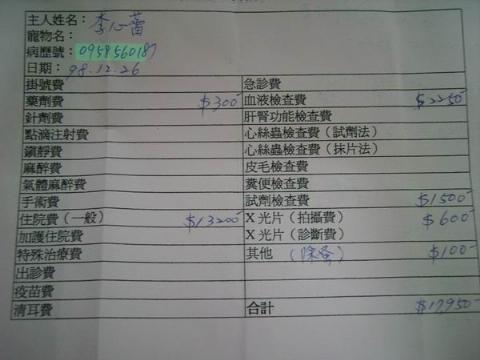 主人姓名：李心蕾
寵物名：
病歷號：0958560187
日期：98.12.26
掛號費 急診費
藥劑費 $300 血液檢查費 $2250
針劑費 肝腎功能檢查費
點滴注射費 心絲蟲檢查費（試劑法）
鎮靜費 心絲蟲檢查費（抹片法）
麻醉費 皮毛檢查費
氣體麻醉費 糞便檢查費
手術費 試劑檢查費 $1500
住院費（一般） $13200 X光片（拍攝費） $600
加護住院費 X光片（診斷費）
特殊治療費 其他 （除蚤） $100
出診費
疫苗費
清耳費 合計 $17,950